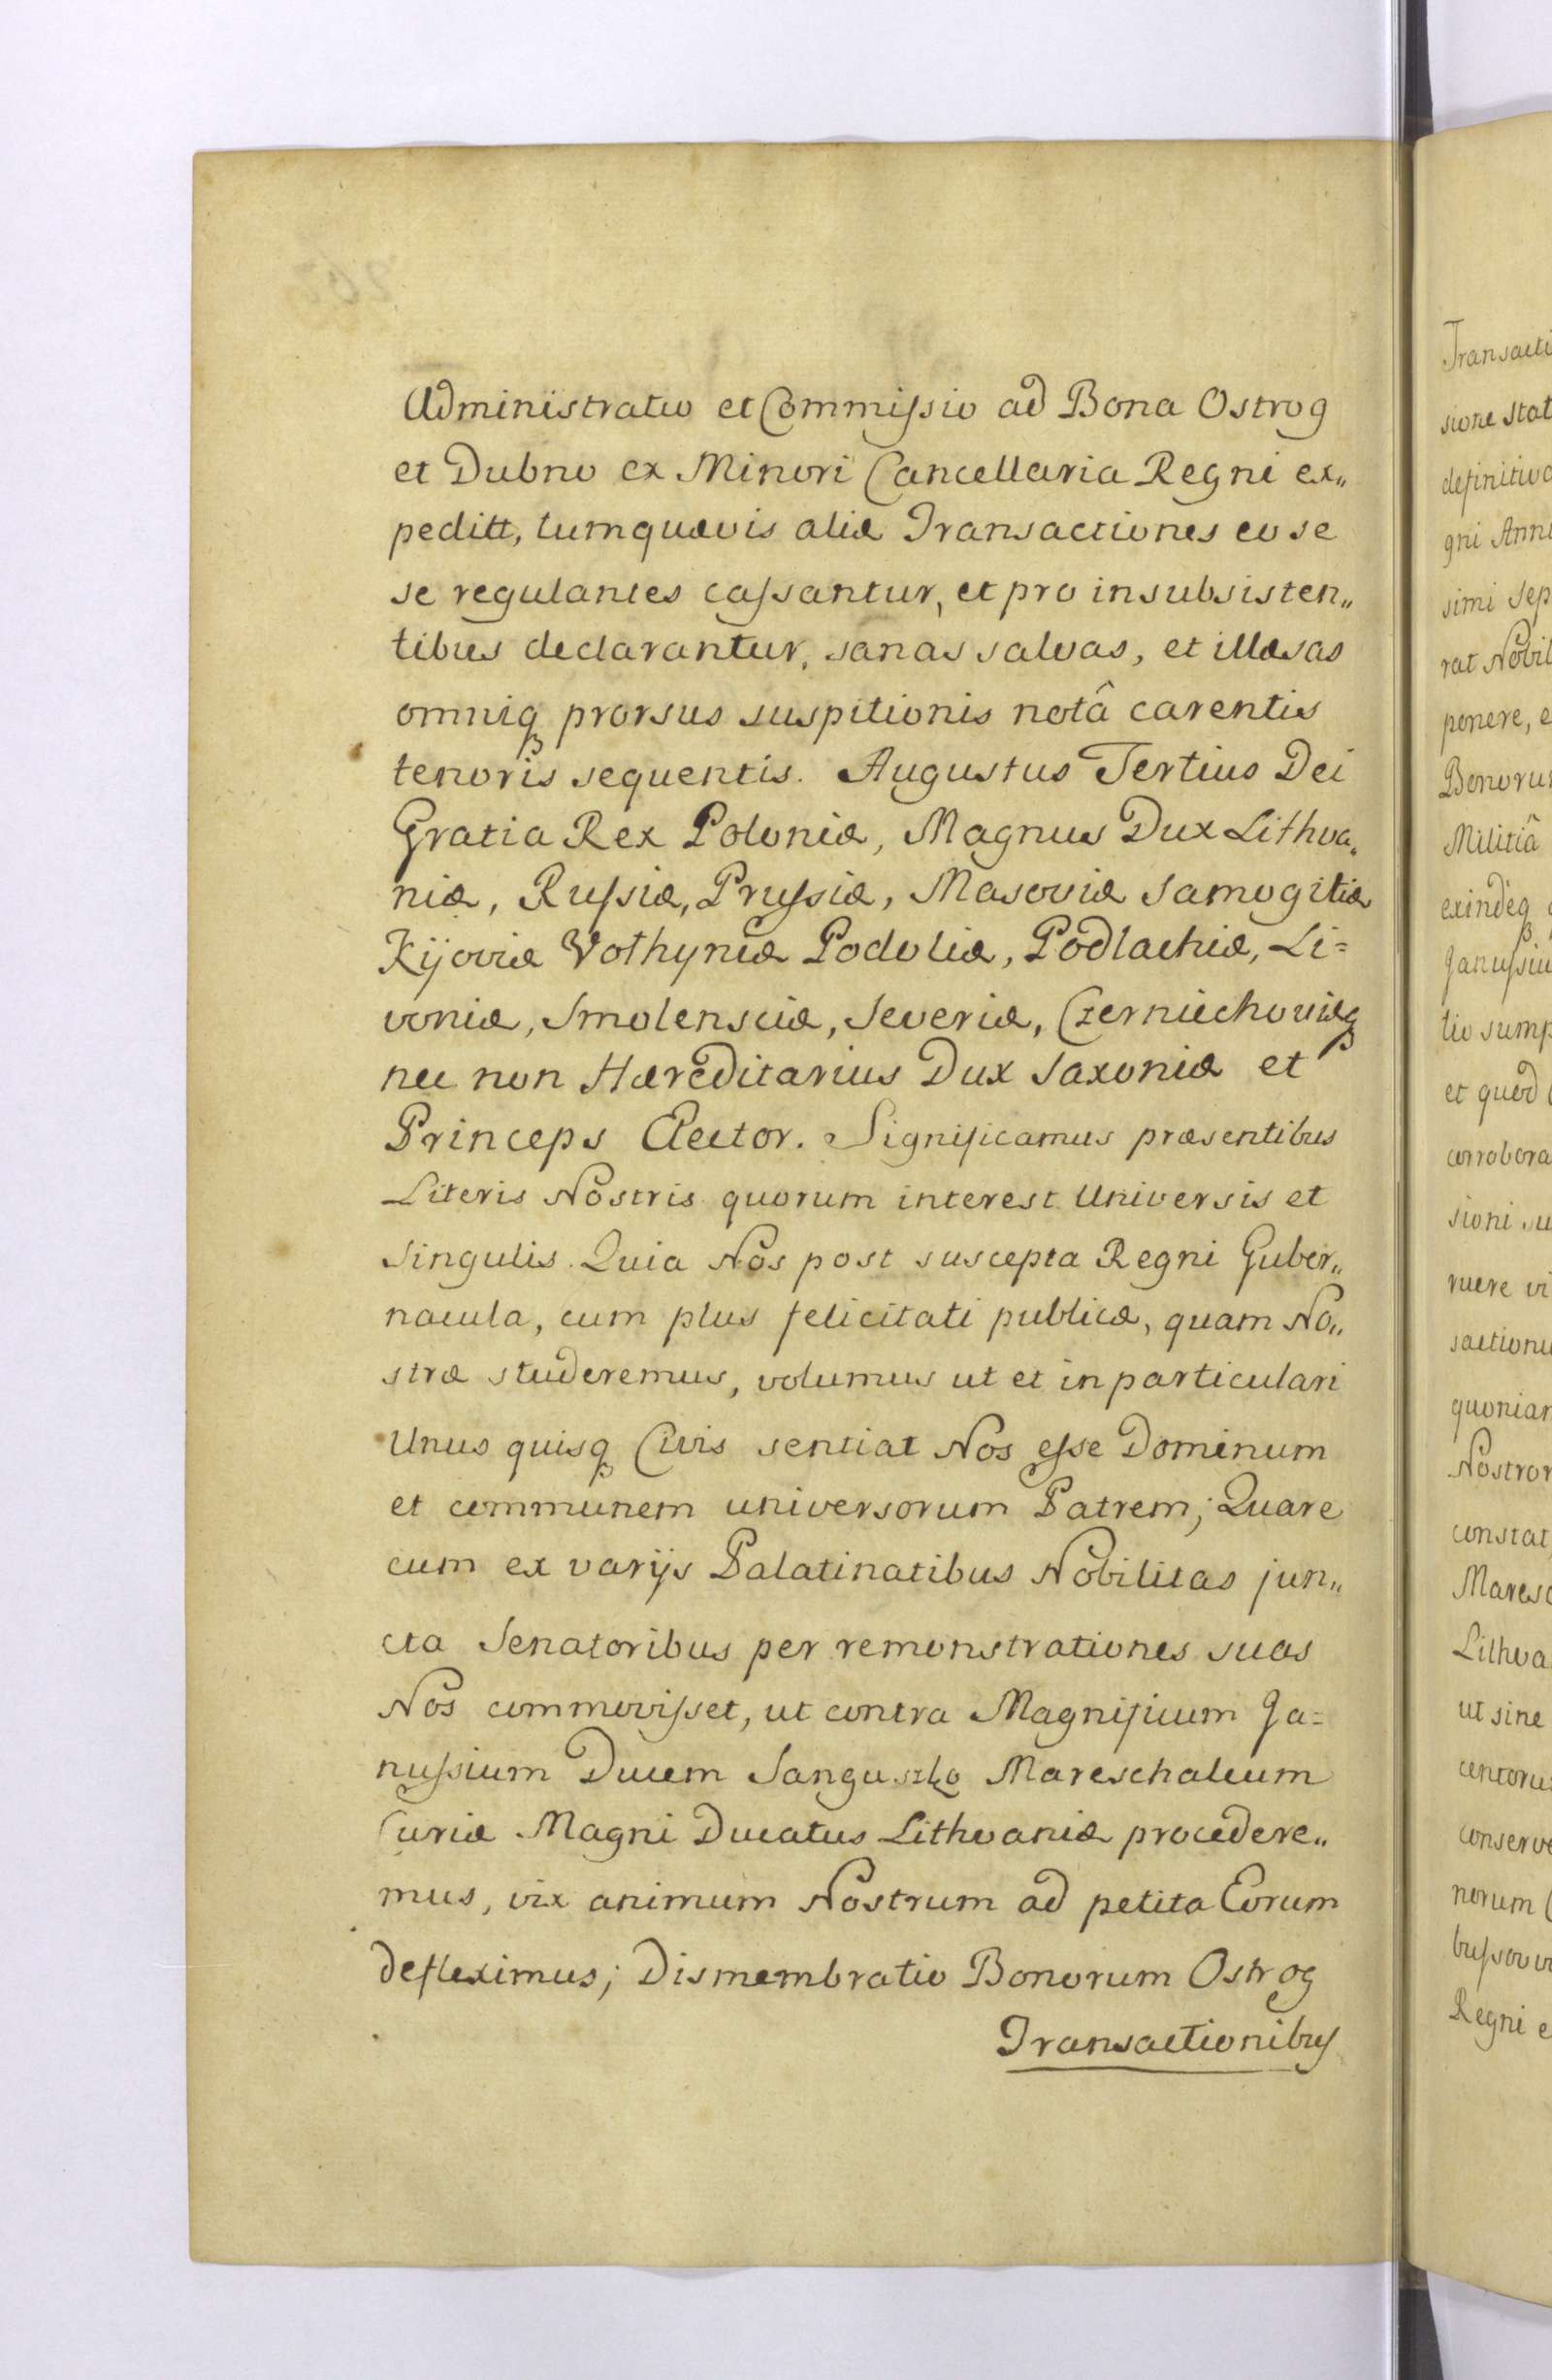 Administratio et Commissio ad Bona Ostrog
et Dubno ex Minori Cancellaria Regni ex„
peditt, tum quævis aliæ Transactiones eo se
se regulantes cassantur, et pro insubsisten„
tibus declarantur, sanas salvas, et illæsas
omniq prorsus suspitionis notâ carentis
tenoris sequentis. Augustus Tertius Dei
Gratia Rex Poloniæ, Magnus Dux Lithva„
niæ, Russiæ, Prussiæ, Masoviæ Samogitiæ
Kijoviæ Volhyniæ Podoliæ, Podlachiæ, Li=
voniæ, Smolensciæ, Severiæ, Czerniechoviæq
nec non Hæreditarius Dux Saxoniæ et
Princeps Elector. Significamus præsentibus
Literis Nostris quorum interest Universis et
Singulis. Quia Nos post suscepta Regni Guber„
nacula, cum plus felicitati publicæ, quam No„
stræ studeremus, volumus ut et in particulari
Unus quisq Civis sentiat Nos esse Dominum
et communem universorum Patrem; Quare
cum ex varijs Palatinatibus Nobilitas jun„
cta Senatoribus per remonstrationes suas
Nos commovisset, ut contra Magnificum Ja=
nussium Ducem Sanguszko Mareschalcum
Curiæ Magni Ducatus Lithvaniæ procedere„
mus, vix animum Nostrum ad petita Eorum
defleximus; Dismembratio Bonorum Ostrog
Transactionibus
Transacti
sione Stat
definitiva
gni Anni
simi Sep
rat Nobil
ponere, e
Bonorum
Militiâ
exindeq
Janussiu
tio sump
et quod
corrobora
sioni su
ruere vi
sactionu
quoniam
Nostror
constat
Maresc
Lithva
ut sine
centoru
conserve
norum
Regni e